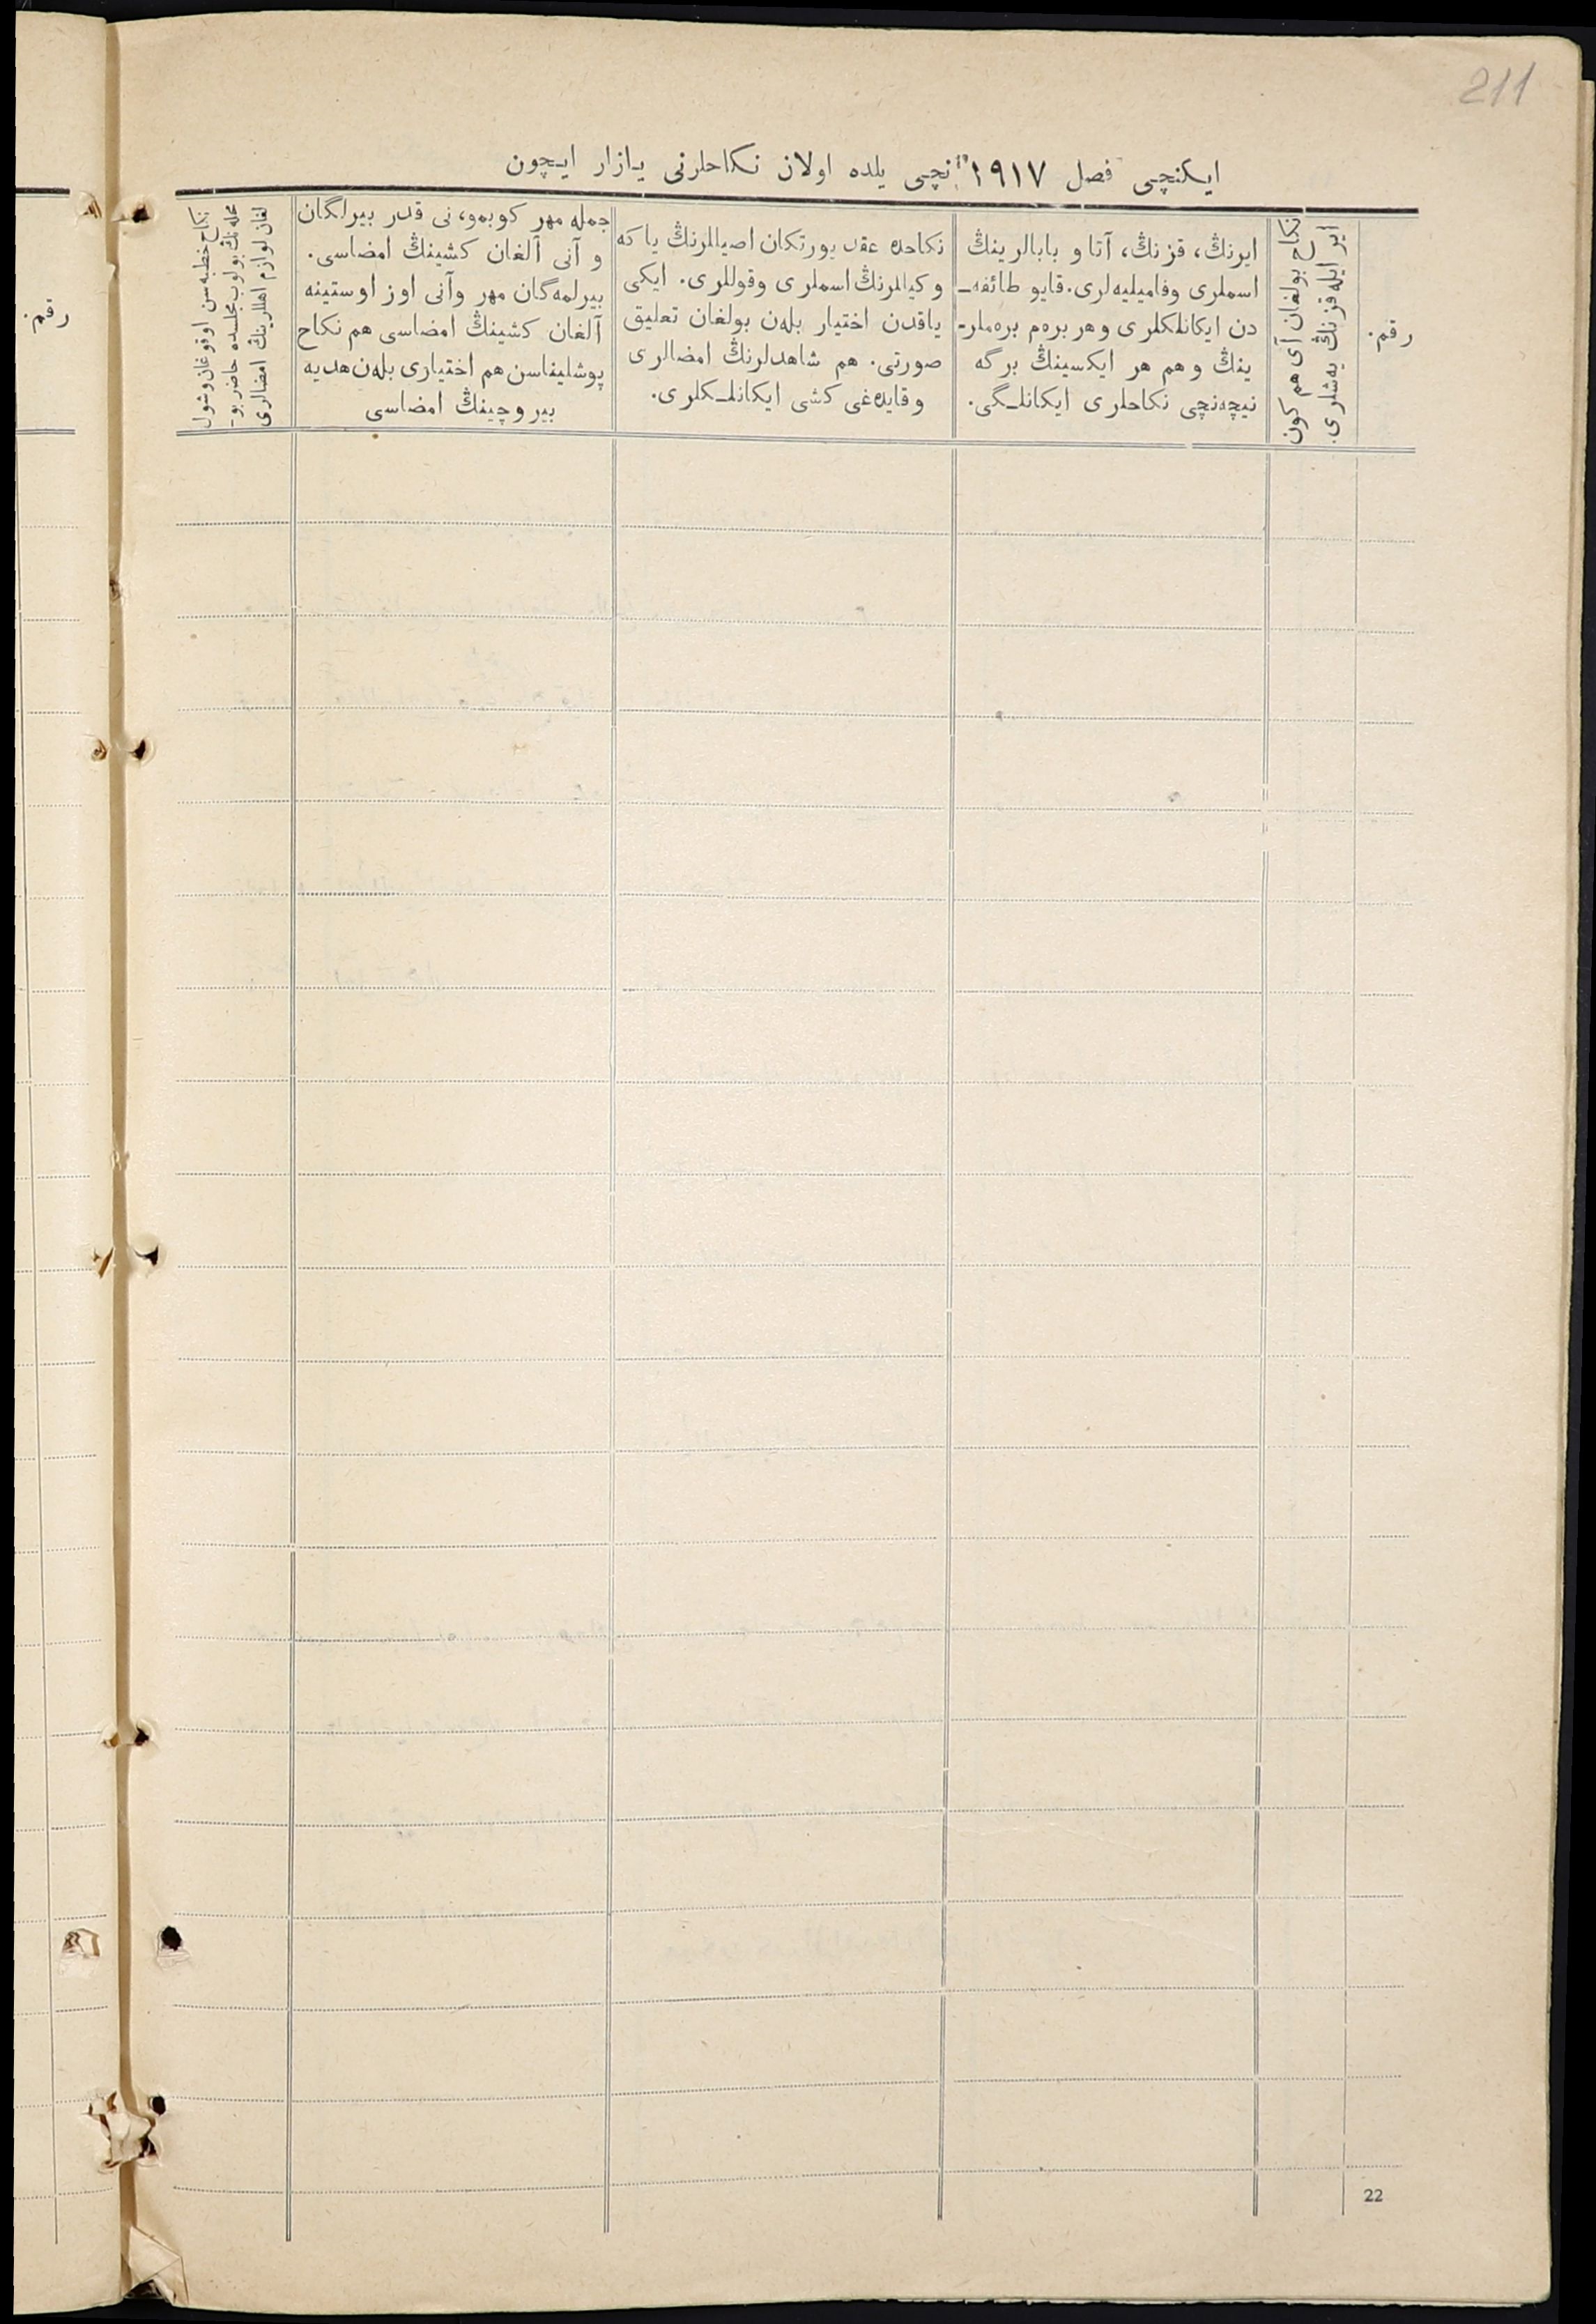 211
ایکنچی فصل ۱۹۱۷ نچی یلده اولان نکاحلرنی یازار ایچون
رقم.
نکاح بولغان آی هم کون
ایر ایله قزنڭ یه‌شلری.
ایرنڭ، قزنڭ، آتا و بابالرینڭ
اسملری وفامیلیه‌لری. قایو طائفه‌ـ
دن ایکانلکلری وهر بره‌م بره‌ملرـ
ینڭ وهم هر ایکسینڭ برگه
نیچه‌نچی نکاحلری ایکانلـگی.
نکاحده عقد یورتکان اصیاللرنڭ یا که
وکیاللرنڭ اسملری وقوللری. ایکی
یاقدن اختیار بلەن بولغان تعلیق
صورتی. هم شاهدلرنڭ امضالری
وقایده‌غی کشی ایکانلـکلری.
جمله مهر کوبمو، نی قدر بیرلگان
و آنی آلغان کشینڭ امضاسی.
بیرلمه‌گان مهر وآنی اوز اوستینه
آلغان کشینڭ امضاسی هم نکاح
پوشلیناسن هم اختیاری بلەن هدیه
بیروچینڭ امضاسی
نکاح خطبه سن اوقوغان وشول
محله‌نڭ بولوب مجلسده حاضر بوـ
لغان لوازم اهللرینڭ امضالری
رقم.
22